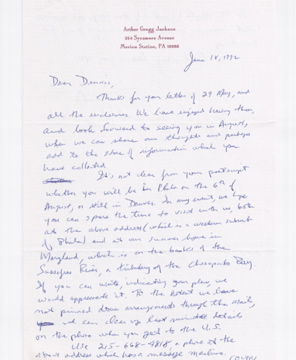 Arthur Gregg Jackson
324 Sycamore Avenue
Merion Station, PA 19066
June 18, 1992
Dear Dennis,
Thanks for your letter of 29 May, and
all the enclosures. We have enjoyed having them,
and look forward to seeing you in August,
when we can share our thoughts and perhaps
add to the store of information which you
have collected.
It's not clear from your postscript
whether you will be in Phila on the 6th of
August, or still in Denver. In any event, we hope
you can spare the time to visit with us, both
at the above address (which is a western suburb
of Phila) and at our summer home in
Maryland, which is on the banks of the
Sassafras River, a tributary of the Chesapeake Bay.
If you can write, indicating your plans, we
would appreciate it. To the extent we have
not pinned down arrangements through the mail,
we can clear up last minute details
on the phone when you get to the U.S.
Use 215-668-4818, a phone at the
above address which has a message machine.
(over)